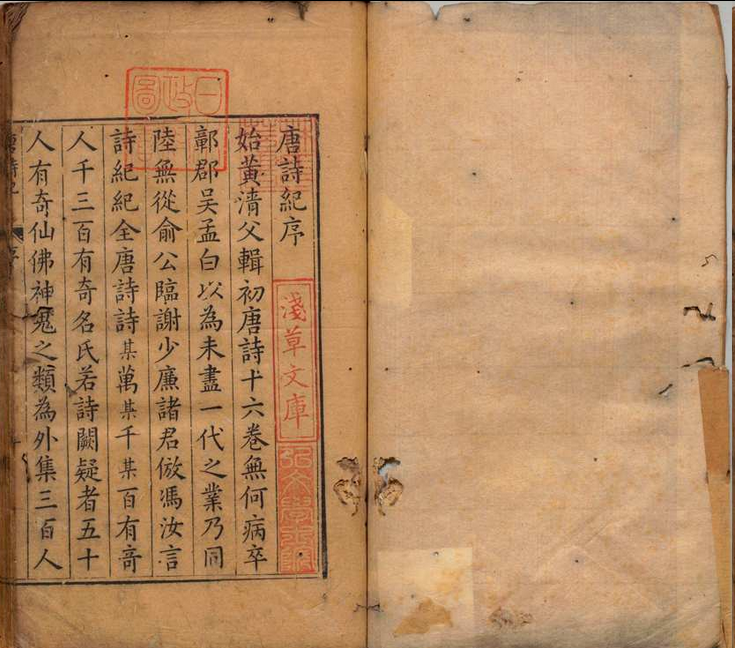 唐詩紀序
淺草文庫
始黃清父輯初唐詩十六卷無何病卒
鄣郡吳孟白以為未盡一代之業乃同
陸無從俞公臨謝少廉諸君倣馮汝言
詩紀紀全唐詩詩某萬某千某百有奇
人千三百有奇名氏若詩闕疑者五十
人有奇仙佛神鬼之類為外集三百人